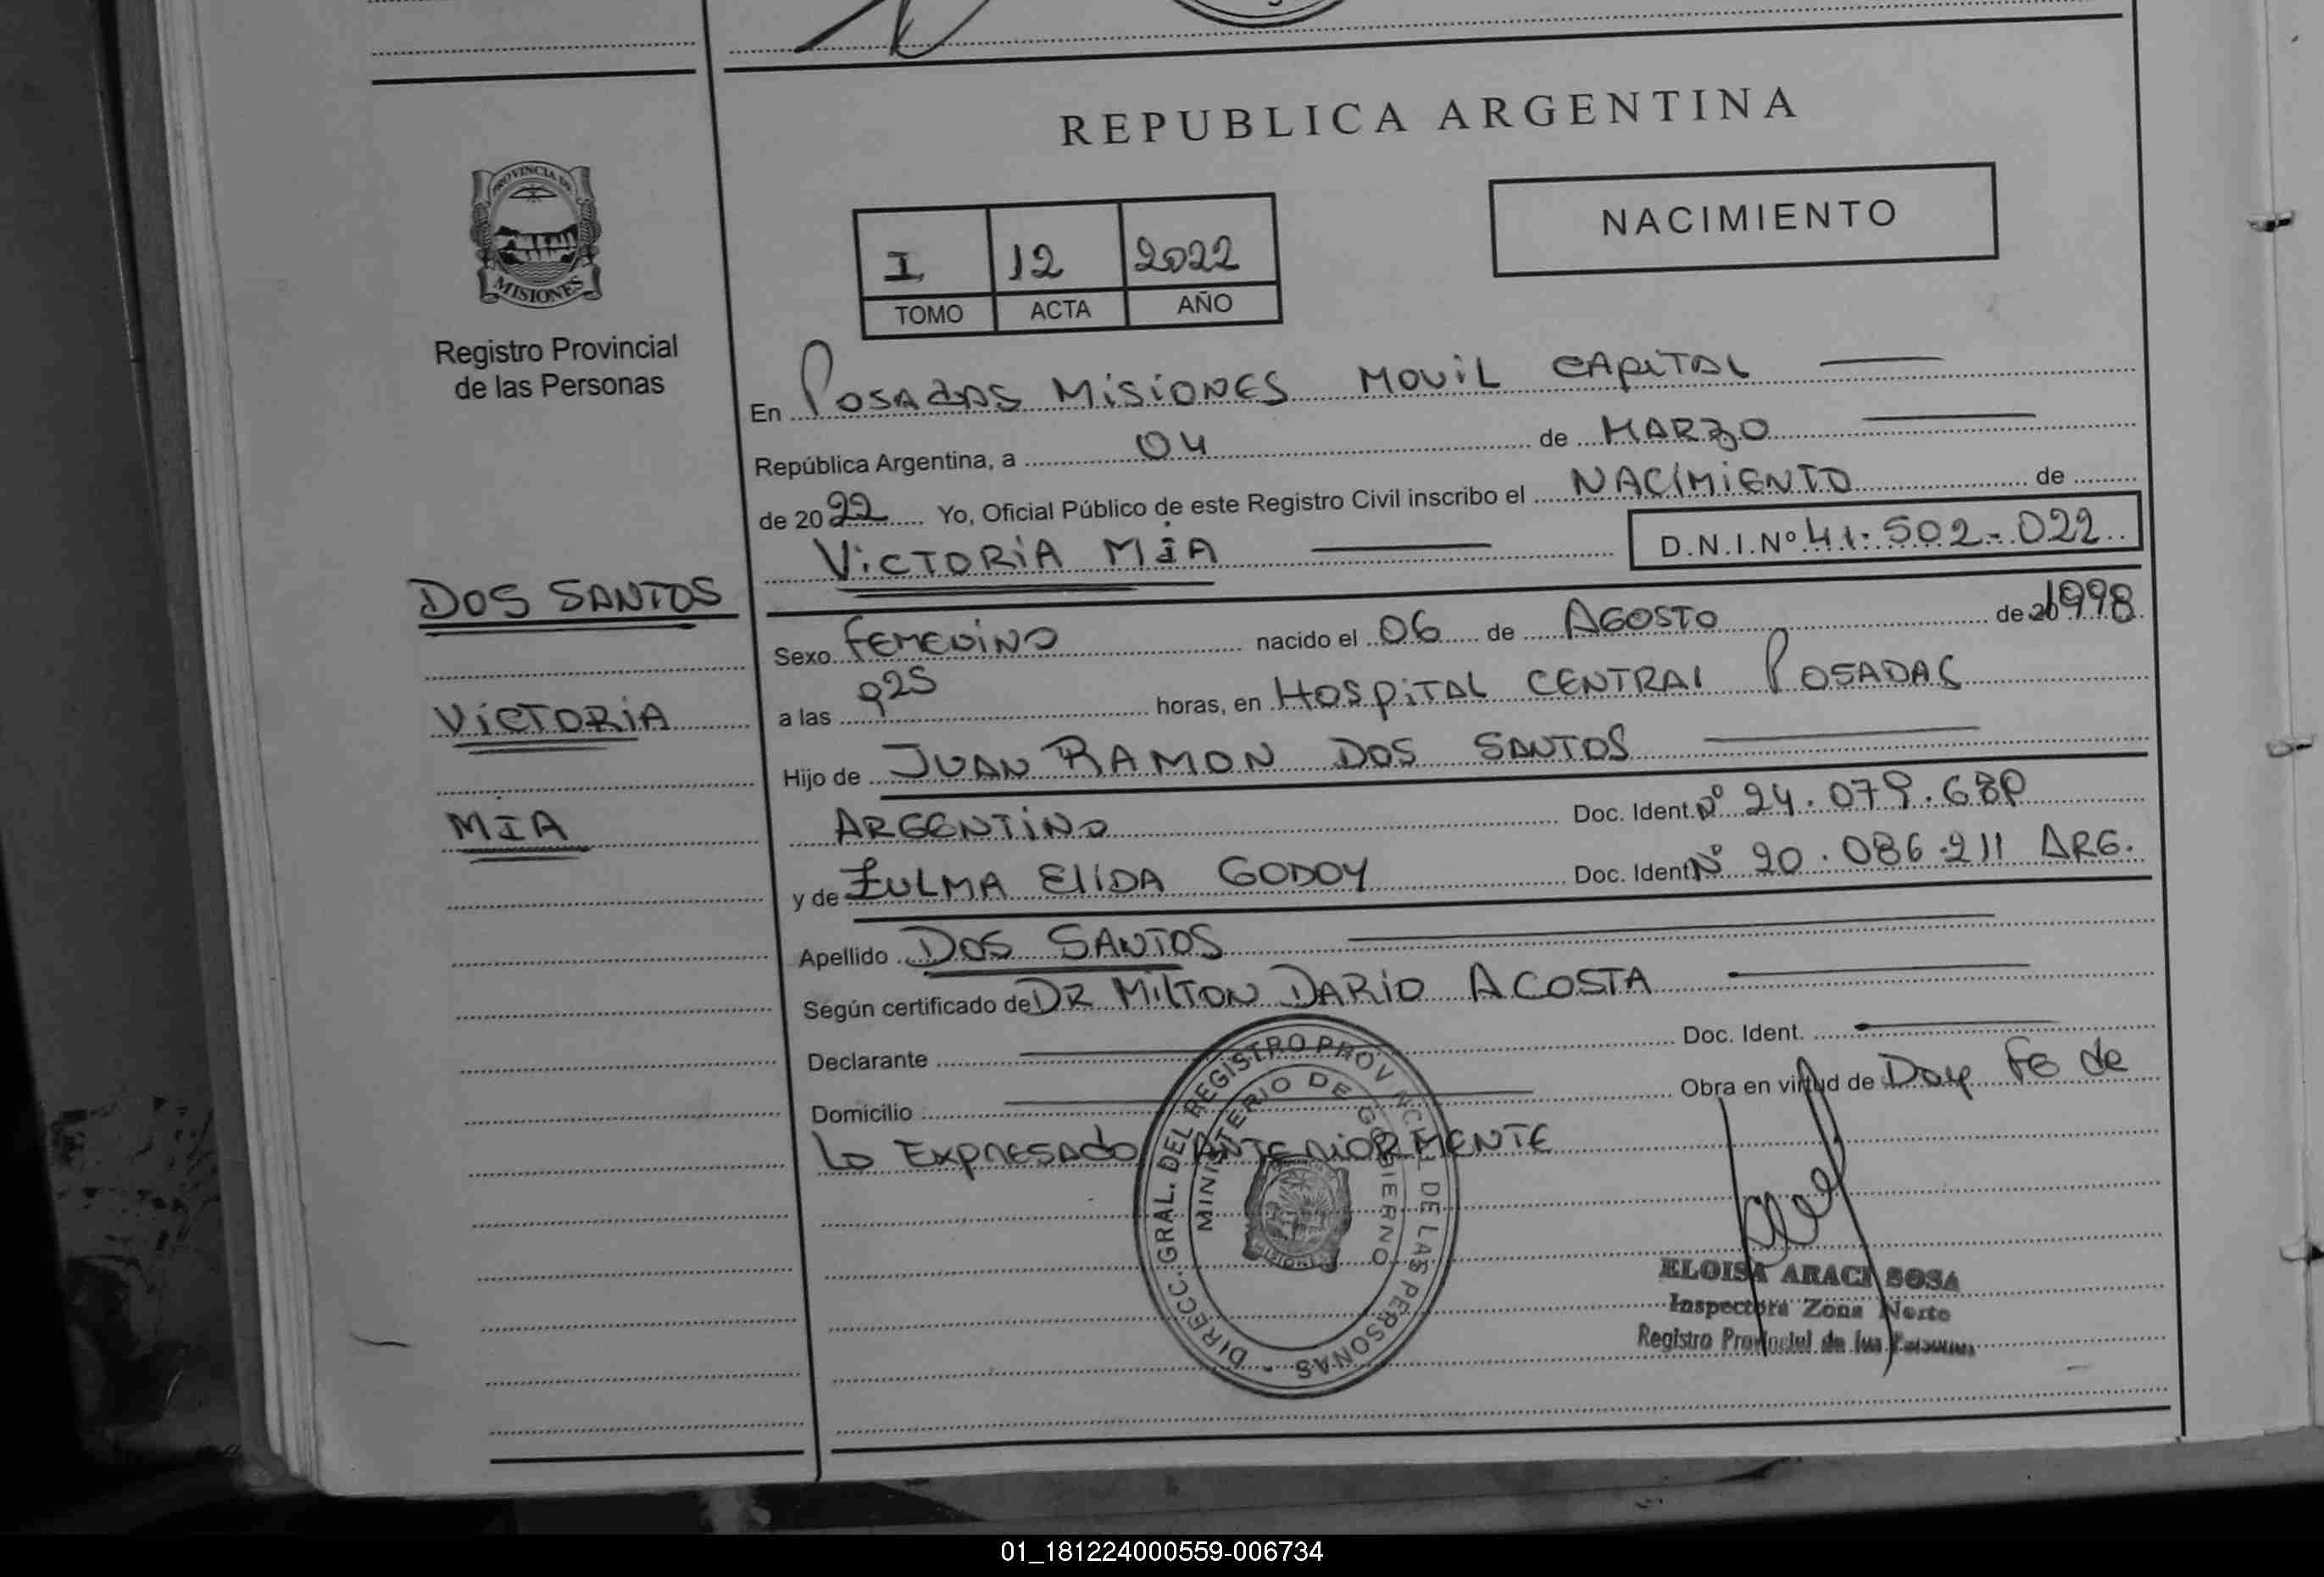 REPUBLICA ARGENTINA
PROVINCIA DE
MISIONES
Registro Provincial
de las Personas
NACIMIENTO
I 12 2022
TOMO ACTA AÑO
En POSADAS MISIONES MOVIL CAPITAL
República Argentina, a 04 de MARZO
de 2022 Yo, Oficial Público de este Registro Civil inscribo el NACIMIENTO de
VICTORIA MIA D.N.I.Nº 41.502.022
DOS SANTOS
VICTORIA
MIA
Sexo FEMENINO nacido el 06 de AGOSTO de 20 1998
a las 925 horas, en HOSPITAL CENTRAL POSADAS
Hijo de JUAN RAMON DOS SANTOS
ARGENTINO Doc. Ident. Nº 24.079.
y de ZULMA ELIDA GODOY Doc. Ident. Nº 20.086.211 ARG.
Apellido DOS SANTOS
Según certificado de DR MILTON DARIO ACOSTA
Declarante Doc. Ident.
Domicilio Obra en virtud de Doy Fe de
Lo EXPRESADO ANTERIORMENTE
DIRECC. GRAL. DEL REGISTRO PROVINCIAL DE LAS PERSONAS -
MINISTERIO DE GOBIERNO
MISIONES
ELOISA ARACI SOSA
Inspectora Zona Norte
Registro Provincial de las Personas
01_181224000559-006734